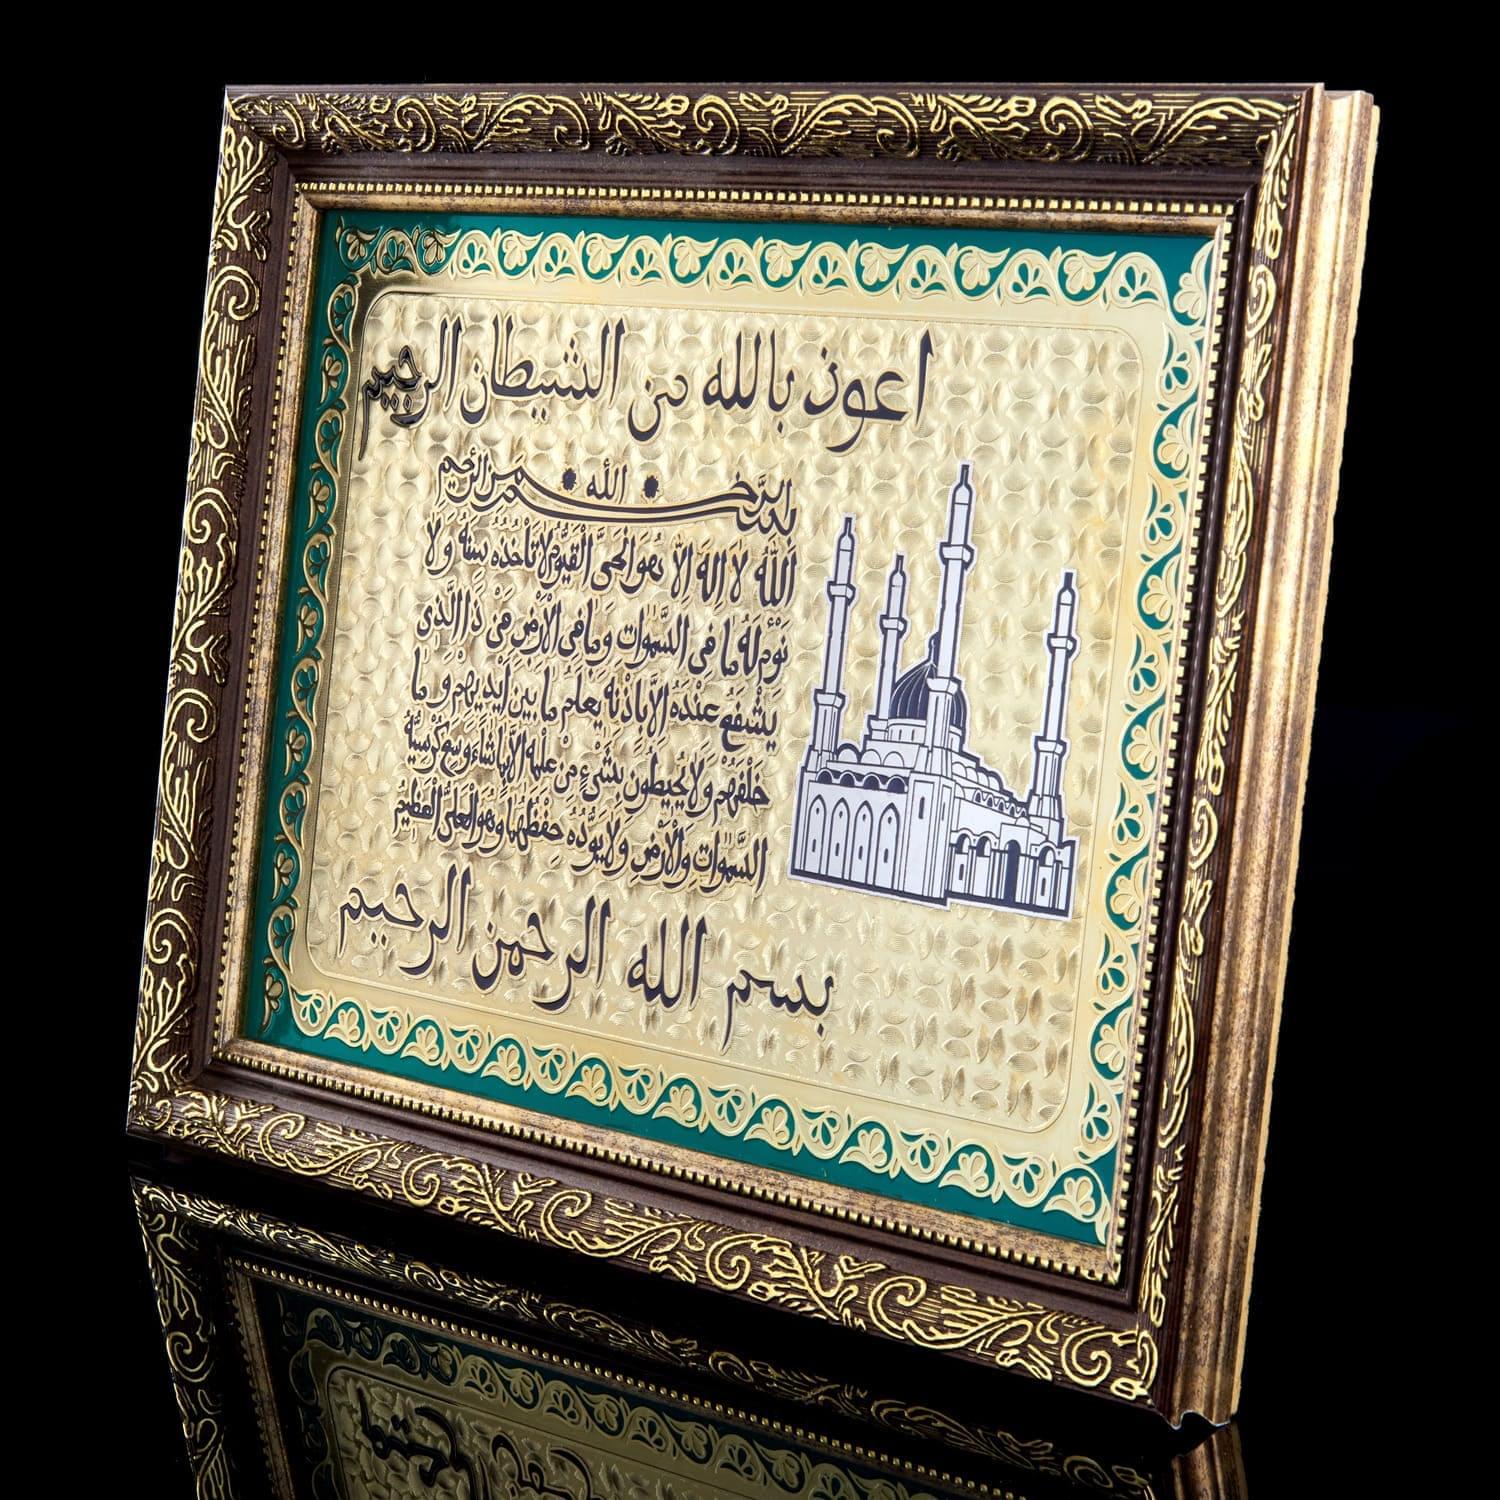 اعوذ بالله من الشيطان الرجيم
بسم الله الرحمن الرحيم
اَللّٰهُ لَا اِلٰهَ اِلَّا هُوَ الْحَىُّ الْقَيُّومُ لَا تَأْخُذُهُ سِنَةٌ وَلَا
نَوْمٌ لَهُ مَا فِى السَّمٰوَاتِ وَمَا فِى الْاَرْضِ مَنْ ذَا الَّذِى
يَشْفَعُ عِنْدَهُ اِلَّا بِاِذْنِهِ يَعْلَمُ مَا بَيْنَ اَيْدِيهِمْ وَمَا
خَلْفَهُمْ وَلَا يُحِيطُونَ بِشَىْءٍ مِنْ عِلْمِهِ اِلَّا بِمَا شَاءَ وَسِعَ كُرْسِيُّهُ
السَّمٰوَاتِ وَالْاَرْضَ وَلَا يَؤُدُهُ حِفْظُهُمَا وَهُوَ الْعَلِىُّ الْعَظِيمُ
بسم الله الرحمن الرحيم